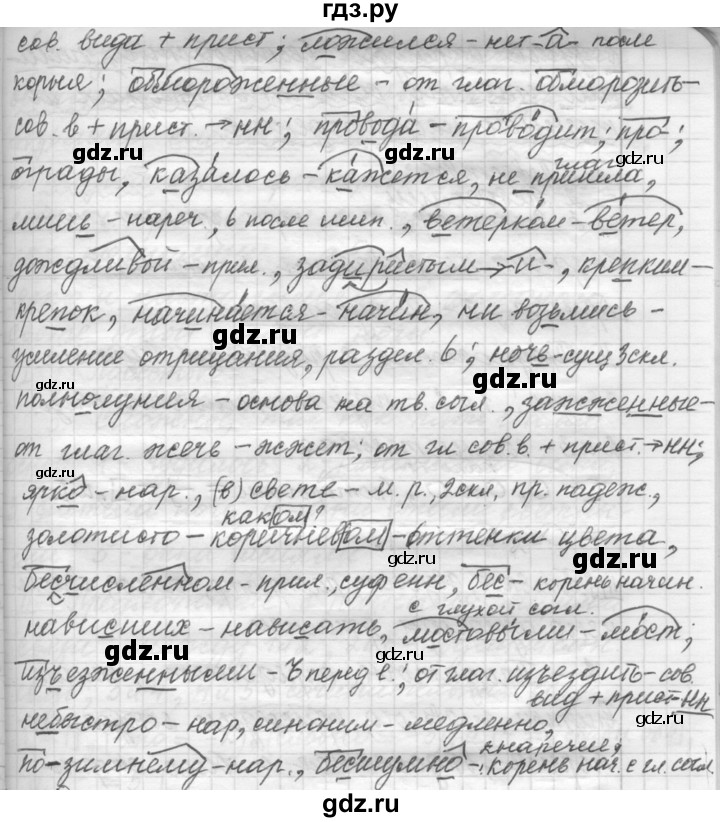 гдз.ру
сов. вида + прист; ложился - нет -а- после
корня; обмороженные - от глаг. обморозить-
gdz.ru
сов. в + прист. → нн; провода - проводит; про-;
gdz.ru
ограды, казалось - кажется, не пришла,
глаг.
лишь - нареч., ь после шип., ветерком - ветер,
gdz.ru
дождливой - прил., задиристым → и-, крепким -
крепок, начинается - начин, ни возьмись -
gdz.ru
усиление отрицания, раздел. ь; ночь - сущ 3 скл.
gdz.ru
полнолуния - основа на тв. согл., зажженные -
gdz.ru
от глаг. жечь - жжет; от гл сов. в. + прист. → нн;
gdz.ru
ярко - нар., (в) свете - м. р., 2 скл, пр. падеж.,
каком?
gdz.ru
золотисто-коричневом - оттенки цвета,
gdz.ru
бесчисленном - прил., суф енн, бес- корень начин.
с глухой согл.
gdz.ru
нависших - нависать, мостовыми - мост;
изъезженными - Ъ перед е.; от глаг. изъездить - сов.
gdz.ru
вид + прист - нн
небыстро - нар, синоним - медленно,
gdz.ru
к наречие;
по-зимнему - нар., бесшумно - корень нач. с гл. согл.
gdz.ru